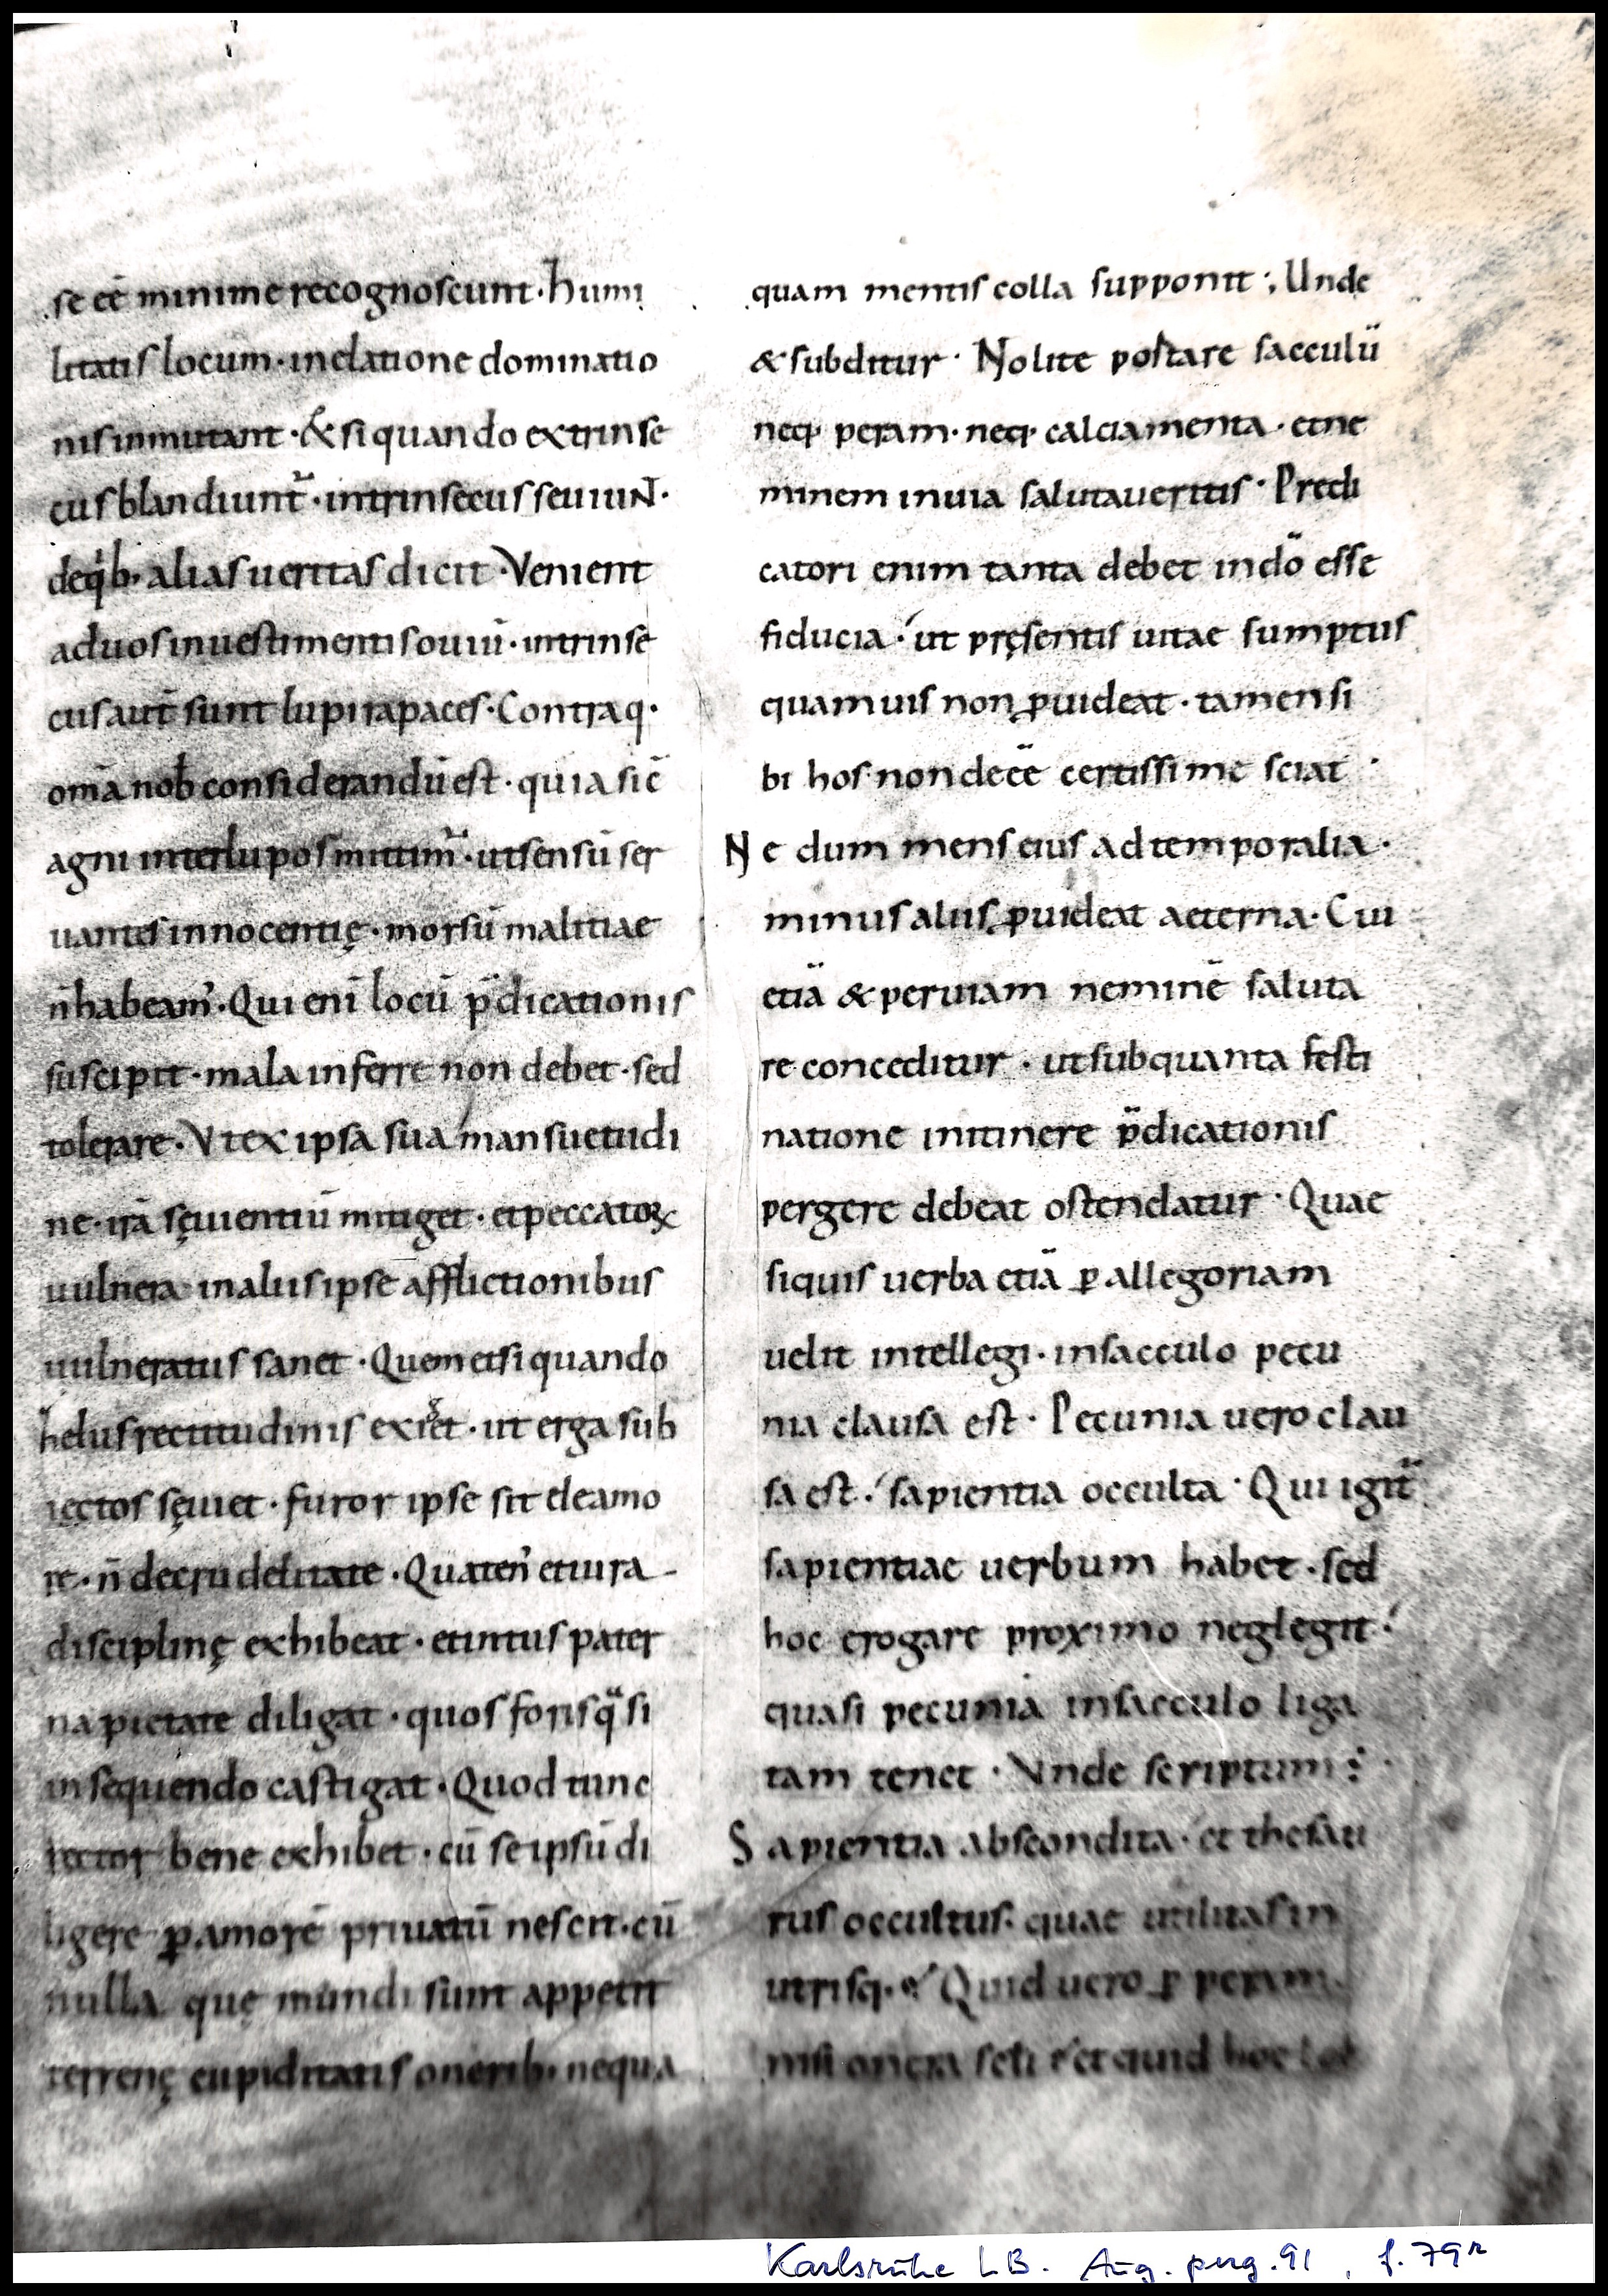 se eē minime recognoscunt · humi
litatis locum · inelatione dominatio
nis inmutant · & si quando extrinse
cus blandiunt᷑ · intrinsecus seuiuN ·
deq'b; alias ueritas dicit · Venient
aduos inuestimentis ouiū · intrinse
cus aut̄ sunt lupirapaces · Contraq ·
om̄a nob̄ considerandū est · quia sic̄
agni interlupos mittim᷑ · utsensū ser
uantes innocentię · morsū malitiae
n̄ habeam' · Qui enī locū p̄dicationis
suscipit · mala inferre non debet · sed
tolerare · Vtex ipsa sua mansuetudi
ne · irā sęuientiū mitiget · etpeccatoꝝ
uulnera inaliis ipse afflictionibus
uulneratus sanet · Quem etsi quando
helus rectitudinis exiget · ut erga sub
iectos sęuiet · furor ipse sit deamo
re · n̄ decrudelitate · Quaten' etiura
disciplinę exhibeat · etintus pater
na pietate diligat · quos foris q̈si
insequendo castigat · Quod tunc
rector bene exhibet · cū se ipsū di
ligere ꝑ amorē priuatū nescit · cū
nulla quę mundi sunt appetit
terrenę cupiditatis onerib; nequa
quam mentis colla supponit ; Unde
& subditur · Nolite portare sacculū
neq; peram · neq; calciamenta · etne
minem inuia salutaueritis · Predi
catori enim tanta debet indō esse
fiducia · ut pręsentis uitae sumptus
quamuis non ꝓuideat · tamen si
bi hos non deeē certissime sciat ·
Ne dum mens eius ad temporalia ·
minus aliis ꝓuideat aeterna · Cui
etiā & peruiam neminē saluta
re conceditur · utsub quanta festi
natione initinere p̄dicationis
pergere debeat ostendatur · Quae
siquis uerba etiā ꝑ allegoriam
uelit intellegi · insacculo pecu
nia clausa est · Pecunia uero clau
sa est · sapientia occulta · Qui igit᷑
sapientiae uerbum habet · sed
hoc erogare proximo neglegit ·
quasi pecunia insacculo liga
tam tenet · Vnde scriptum :
Sapientia abscondita · et thesau
rus occultus · quae utilitas in
utrisq; · Quid uero ꝑ peram
nisi onera scłi et quid hoc
Karlsruhe LB. Aug. perg. 91, f. 79r